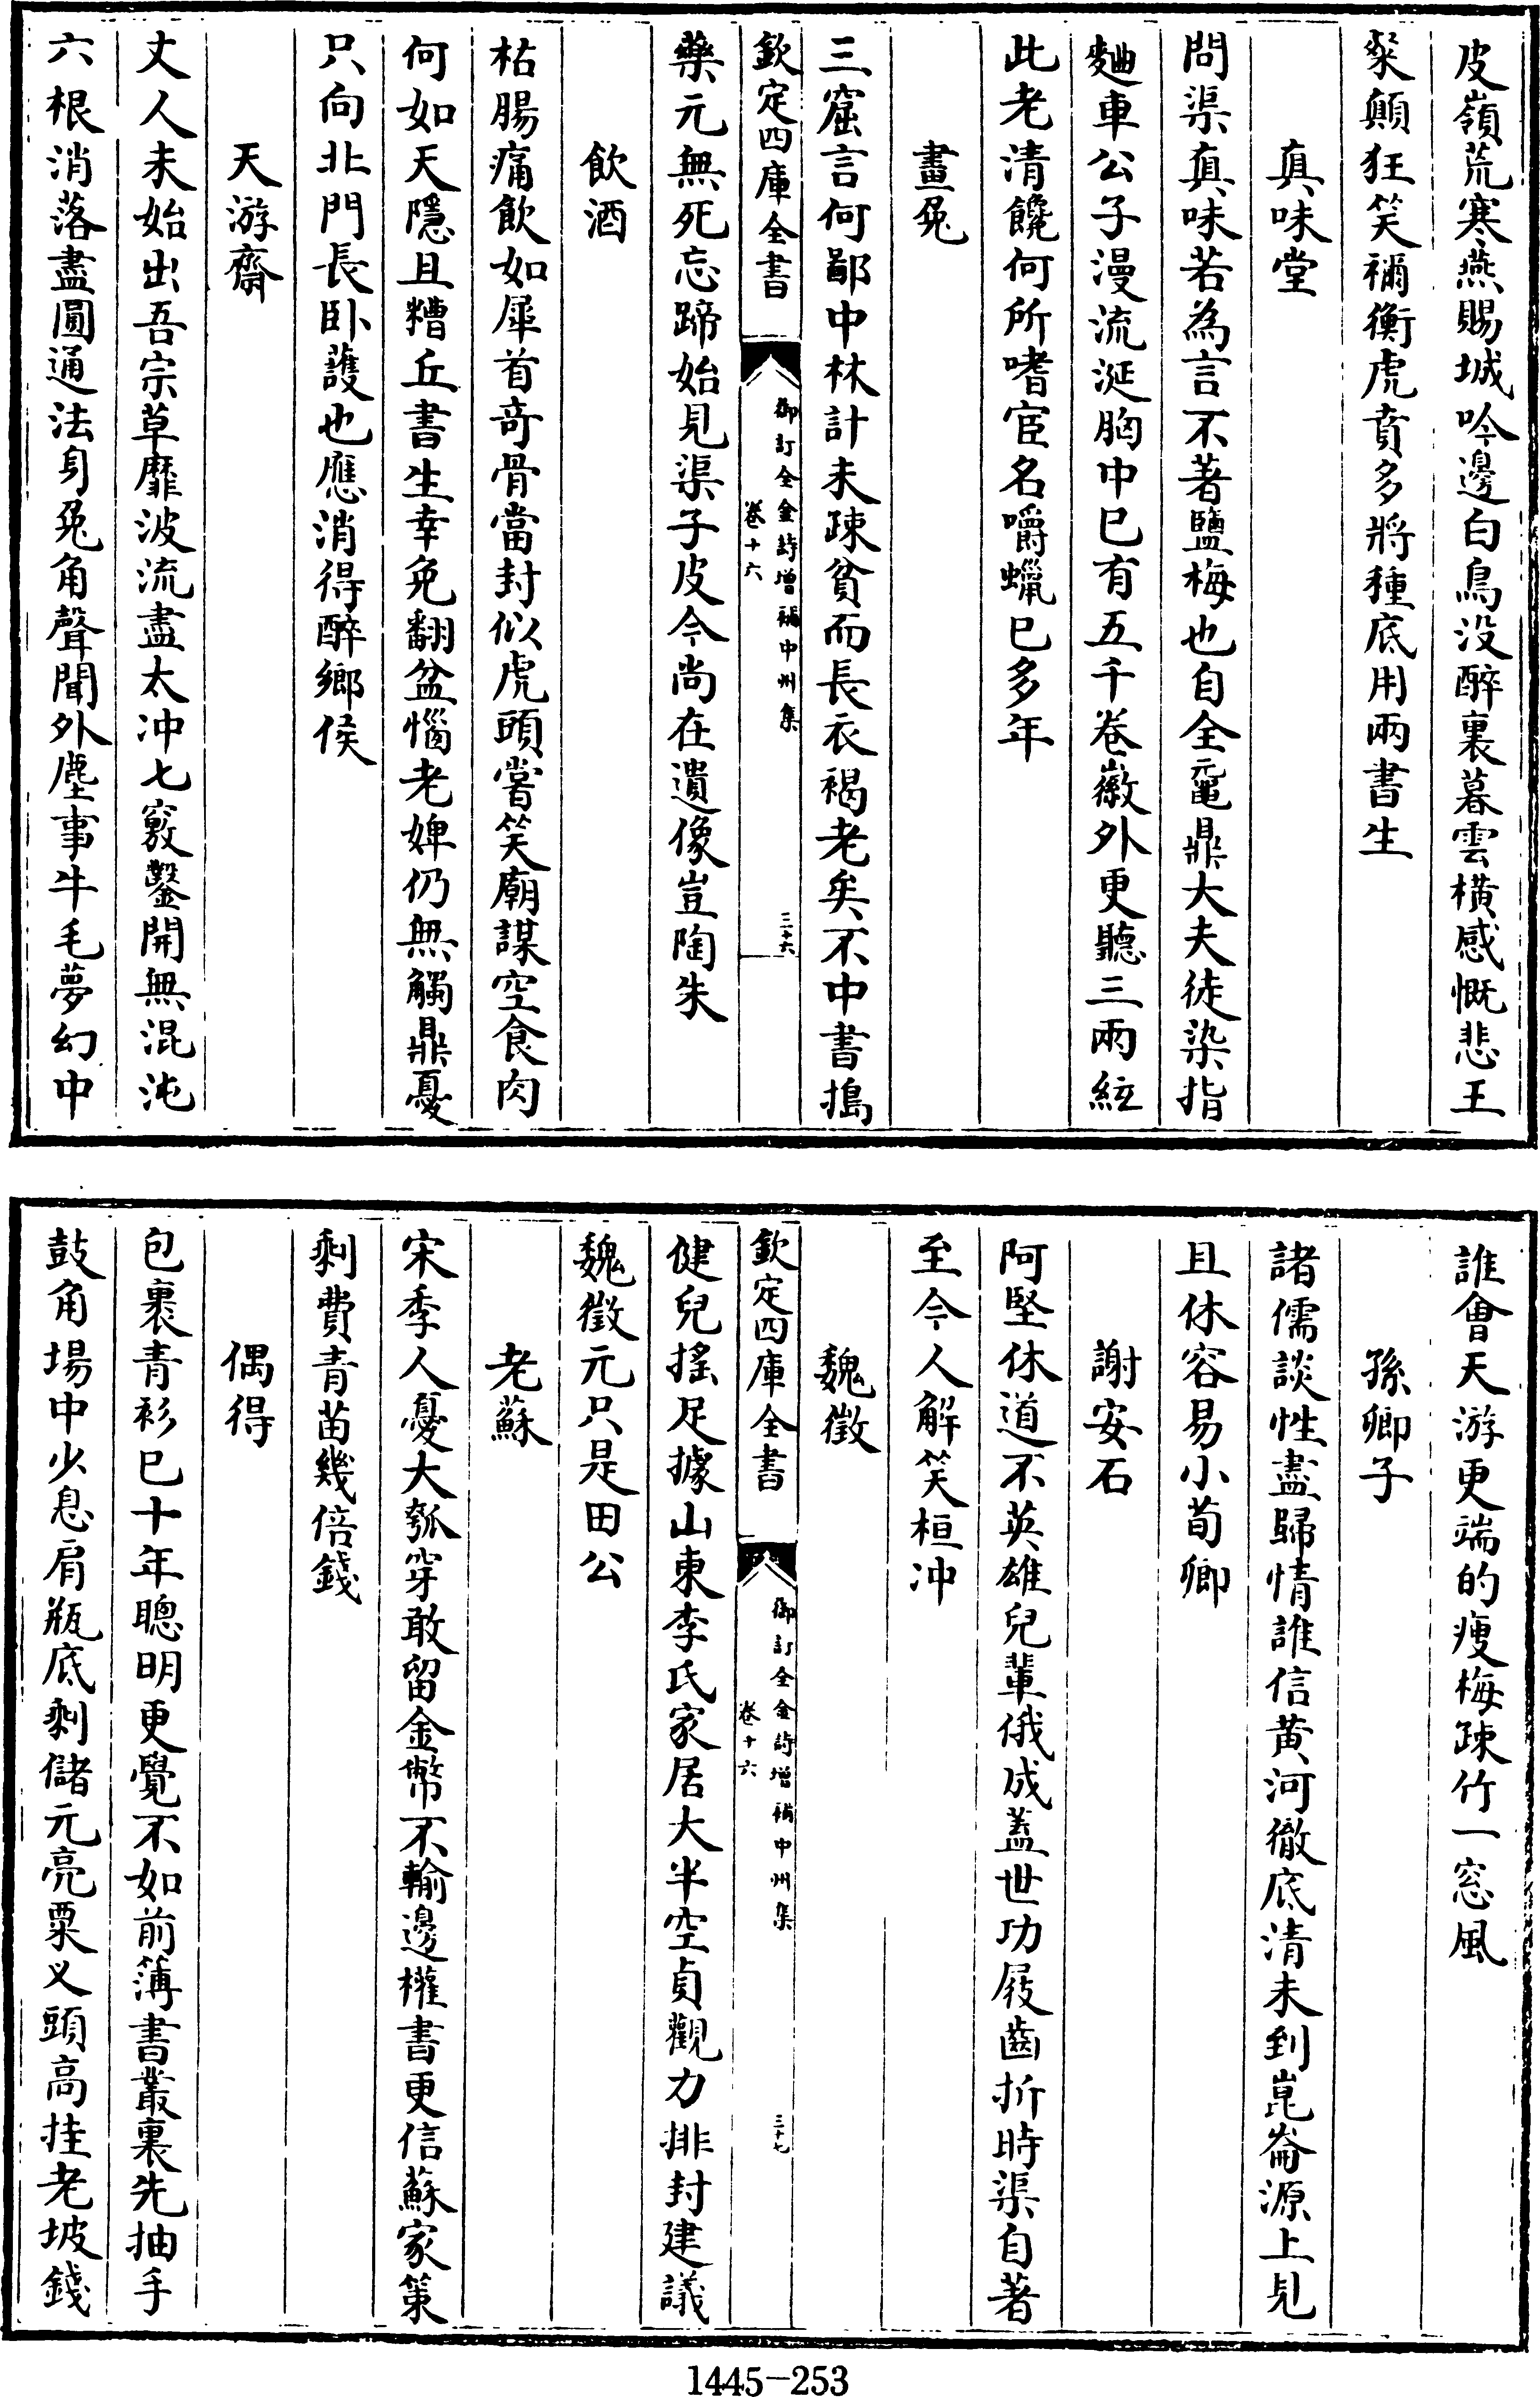 皮嶺荒寒燕賜城吟邊白鳥没醉裏暮雲橫感慨悲王
粲顛狂笑禰衡虎賁多將種底用兩書生
真味堂
問渠真味若為言不著鹽梅也自全黿鼎大夫徒染指
麯車公子漫流涎胸中已有五千卷徽外更聽三兩絃
此老清饞何所嗜宦名嚼蠟已多年
畫兔
三窟言何鄙中林計未疎貧而長衣褐老矣不中書搗
欽定四庫全書
御訂全金詩增補中州集
卷十六
三十六
藥元無死忘蹄始見渠子皮今尚在遺像豈陶朱
飲酒
枯腸痛飲如犀首奇骨當封似虎頭嘗笑廟謀空食肉
何如天隱且糟丘書生幸免翻盆惱老婢仍無觸鼎憂
只向北門長卧護也應消得醉鄉侯
天游齋
丈人未始出吾宗草靡波流盡太冲七竅鑿開無混沌
六根消落盡圓通法身兔角聲聞外塵事牛毛夢幻中
誰會天游更端的瘦梅疎竹一窓風
孫卿子
諸儒談性盡歸情誰信黄河徹底清未到崑崙源上見
且休容易小荀卿
謝安石
阿堅休道不英雄兒輩俄成蓋世功屐齒折時渠自著
至今人解笑桓冲
魏徵
欽定四庫全書
御訂全金詩增補中州集
卷十六
三十七
健兒搖足據山東李氏家居大半空貞觀力排封建議
魏徵元只是田公
老蘇
宋季人憂大瓠穿敢留金幣不輸邊權書更信蘇家策
剩費青苗幾倍錢
偶得
包裹青衫已十年聰明更覺不如前簿書叢裏先抽手
鼓角場中少息肩瓶底剩儲元亮粟乂頭高挂老坡錢
1445-253